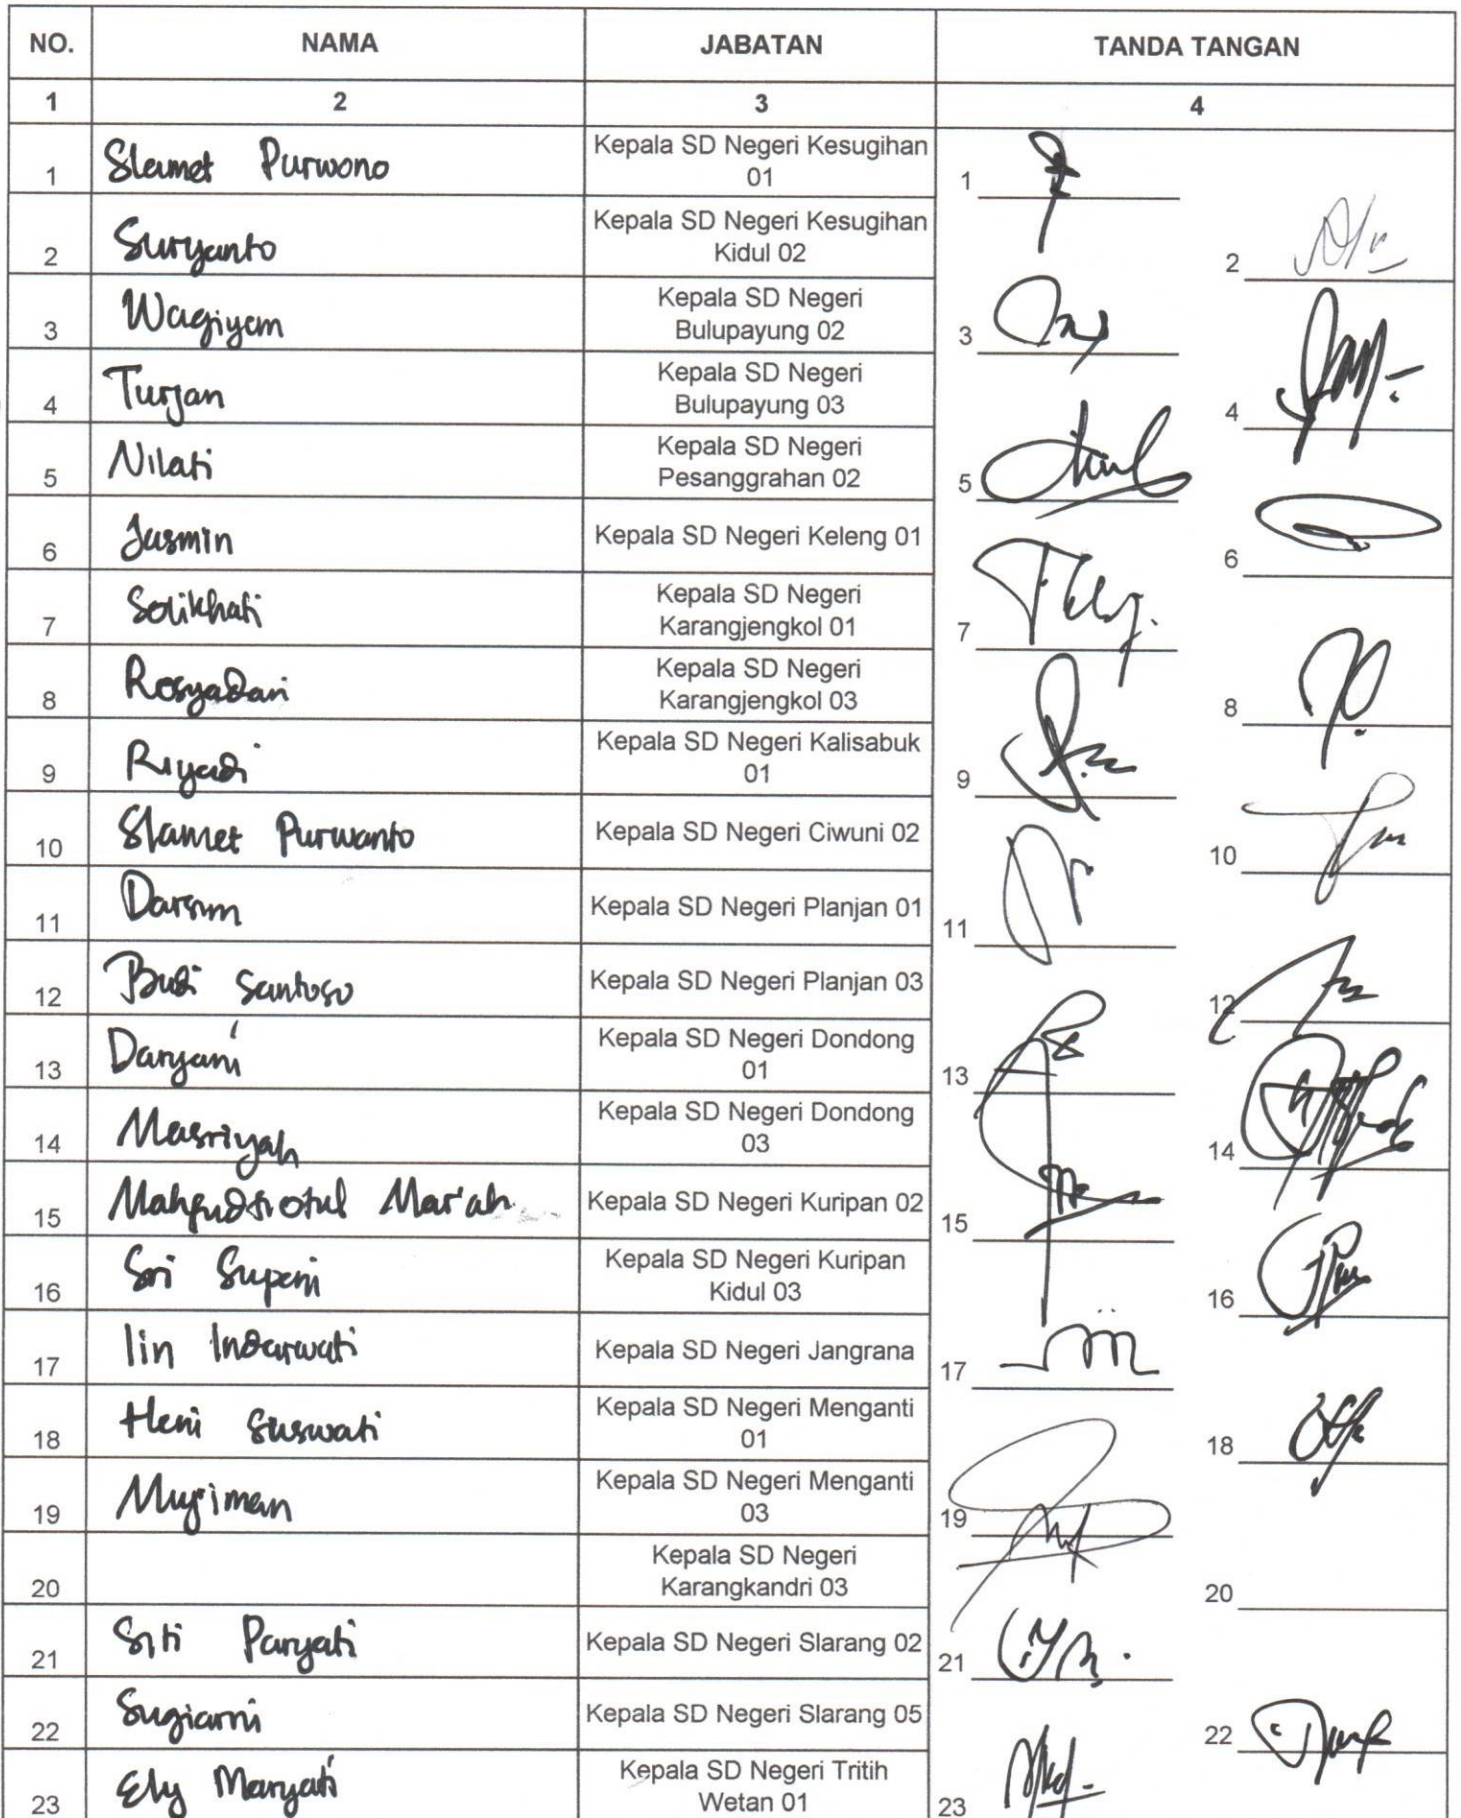 NO. NAMA JABATAN TANDA TANGAN
1 2 3 4
1 Slamet Purwono Kepala SD Negeri Kesugihan 01 1
2 Suryanto Kepala SD Negeri Kesugihan Kidul 02 2
3 Wagiyem Kepala SD Negeri Bulupayung 02 3
4 Turjan Kepala SD Negeri Bulupayung 03 4
5 Nilati Kepala SD Negeri Pesanggrahan 02 5
6 Jasmin Kepala SD Negeri Keleng 01 6
7 Solikhati Kepala SD Negeri Karangjengkol 01 7
8 Rosyadan Kepala SD Negeri Karangjengkol 03 8
9 Riyadi Kepala SD Negeri Kalisabuk 01 9
10 Slamet Purwanto Kepala SD Negeri Ciwuni 02 10
11 Darsum Kepala SD Negeri Planjan 01 11
12 Budi Santoso Kepala SD Negeri Planjan 03 12
13 Daryani Kepala SD Negeri Dondong 01 13
14 Masriyah Kepala SD Negeri Dondong 03 14
15 Mar'ah Kepala SD Negeri Kuripan 02 15
16 Sri Supeni Kepala SD Negeri Kuripan Kidul 03 16
17 Iin Indarwati Kepala SD Negeri Jangrana 17
18 Heni Suswati Kepala SD Negeri Menganti 01 18
19 Mujiman Kepala SD Negeri Menganti 03 19
20 Kepala SD Negeri Karangkandri 03 20
21 Siti Paryati Kepala SD Negeri Slarang 02 21
22 Sugiarni Kepala SD Negeri Slarang 05 22
23 Ely Maryati Kepala SD Negeri Tritih Wetan 01 23